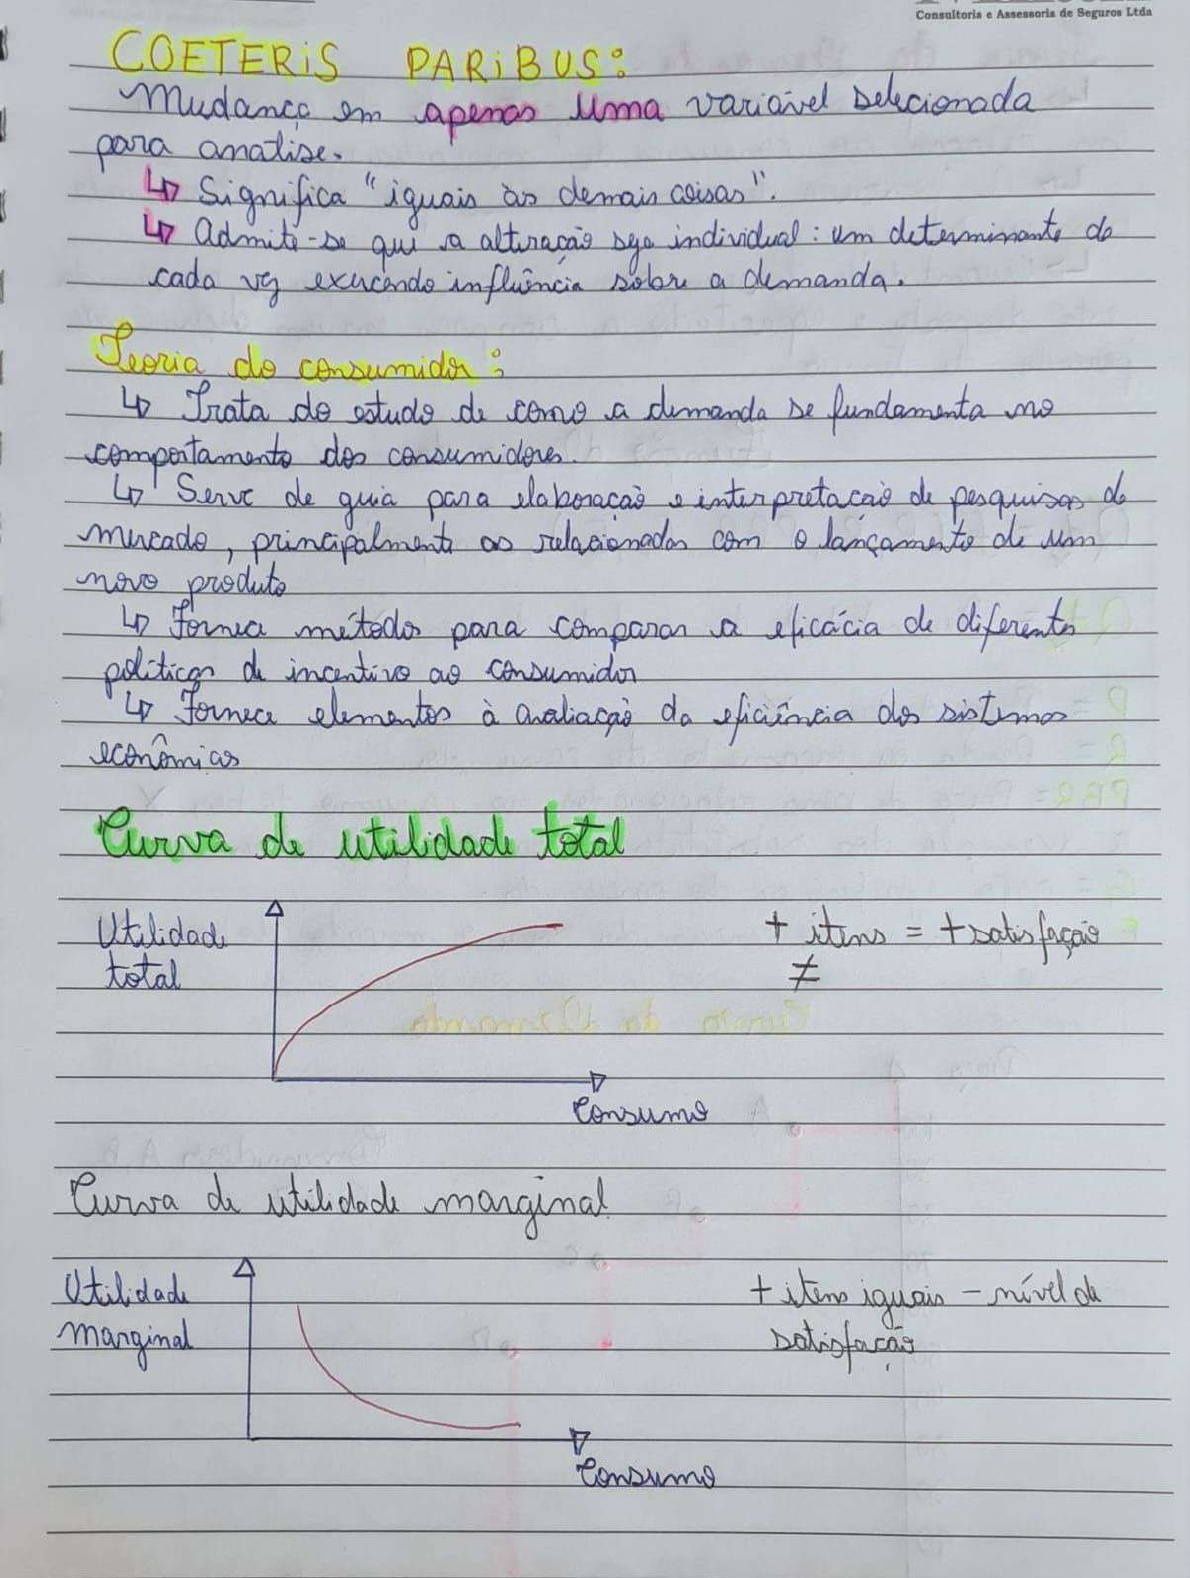 Consultoria e Assessoria de Seguros Ltda
COETERIS PARIBUS:
Mudança em apenas uma variável selecionada
para analise.
↳ Significa "iguais às demais coisas".
↳ Admite-se que a alteração seja individual: um determinante de
cada vez exercendo influência sobre a demanda.
Teoria do consumidor:
↳ Trata do estudo de como a demanda se fundamenta no
comportamento dos consumidores.
↳ Serve de guia para elaboração e interpretação de pesquisas de
mercado, principalmente as relacionadas com o lançamento de um
novo produto
↳ Fornece métodos para comparar a eficácia de diferentes
políticas de incentivo ao consumidor
↳ Fornece elementos à avaliação da eficiência dos sistemas
econômicos
Curva de utilidade total
Utilidade
total
+ itens = + satisfação
≠
Consumo
Curva de utilidade marginal
Utilidade
marginal
+ itens iguais - nível de
satisfação
Consumo